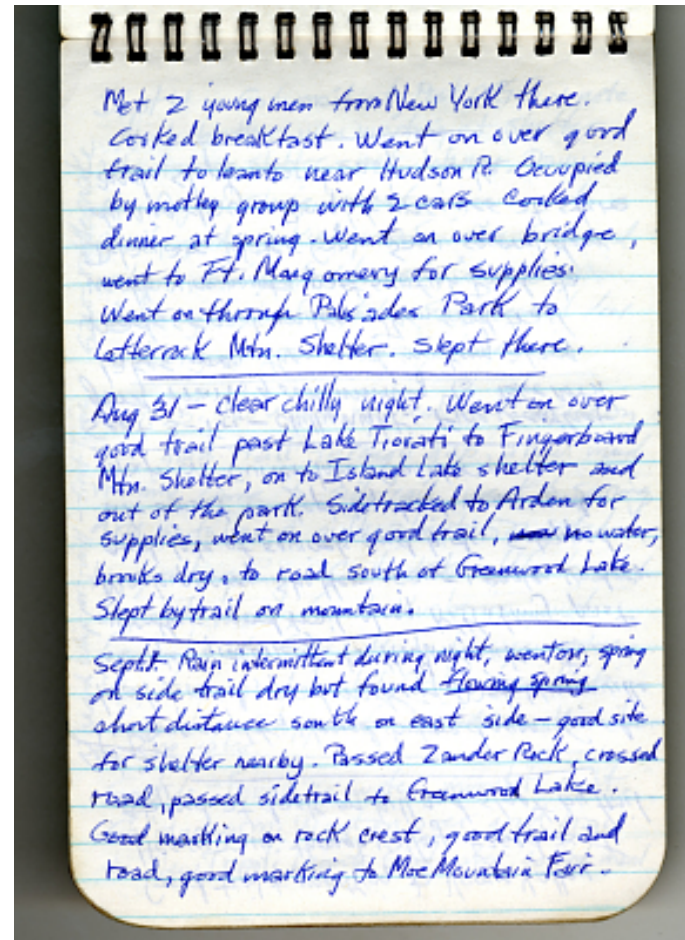 Met 2 young men from New York there.
Cooked breakfast. Went on over good
trail to leanto near Hudson R. Occupied
by motley group with 2 cars Cooked
dinner at spring. Went on over bridge,
went to Ft. Mongomery for supplies.
Went on through Palisades Park to
Letterrock Mtn. Shelter. Slept there.
Aug 31 – Clear chilly night. Went on over
good trail past Lake Tiorati to Fingerboard
Mtn. Shelter, on to Island Lake shelter and
out of the park. Sidetracked to Arden for
supplies, went on over good trail, no water,
brooks dry, to road south of Greenwood Lake.
Slept by trail on mountain.
Sept 1 Rain intermittent during night, went on, spring
on side trail dry but found flowing spring
short distance south on east side – good site
for shelter nearby. Passed Zander Rock, crossed
road, passed sidetrail to Greenwood Lake.
Good marking on rock crest, good trail and
road, good marking to Moe Mountain